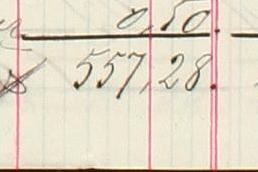 0,50.
557,28.